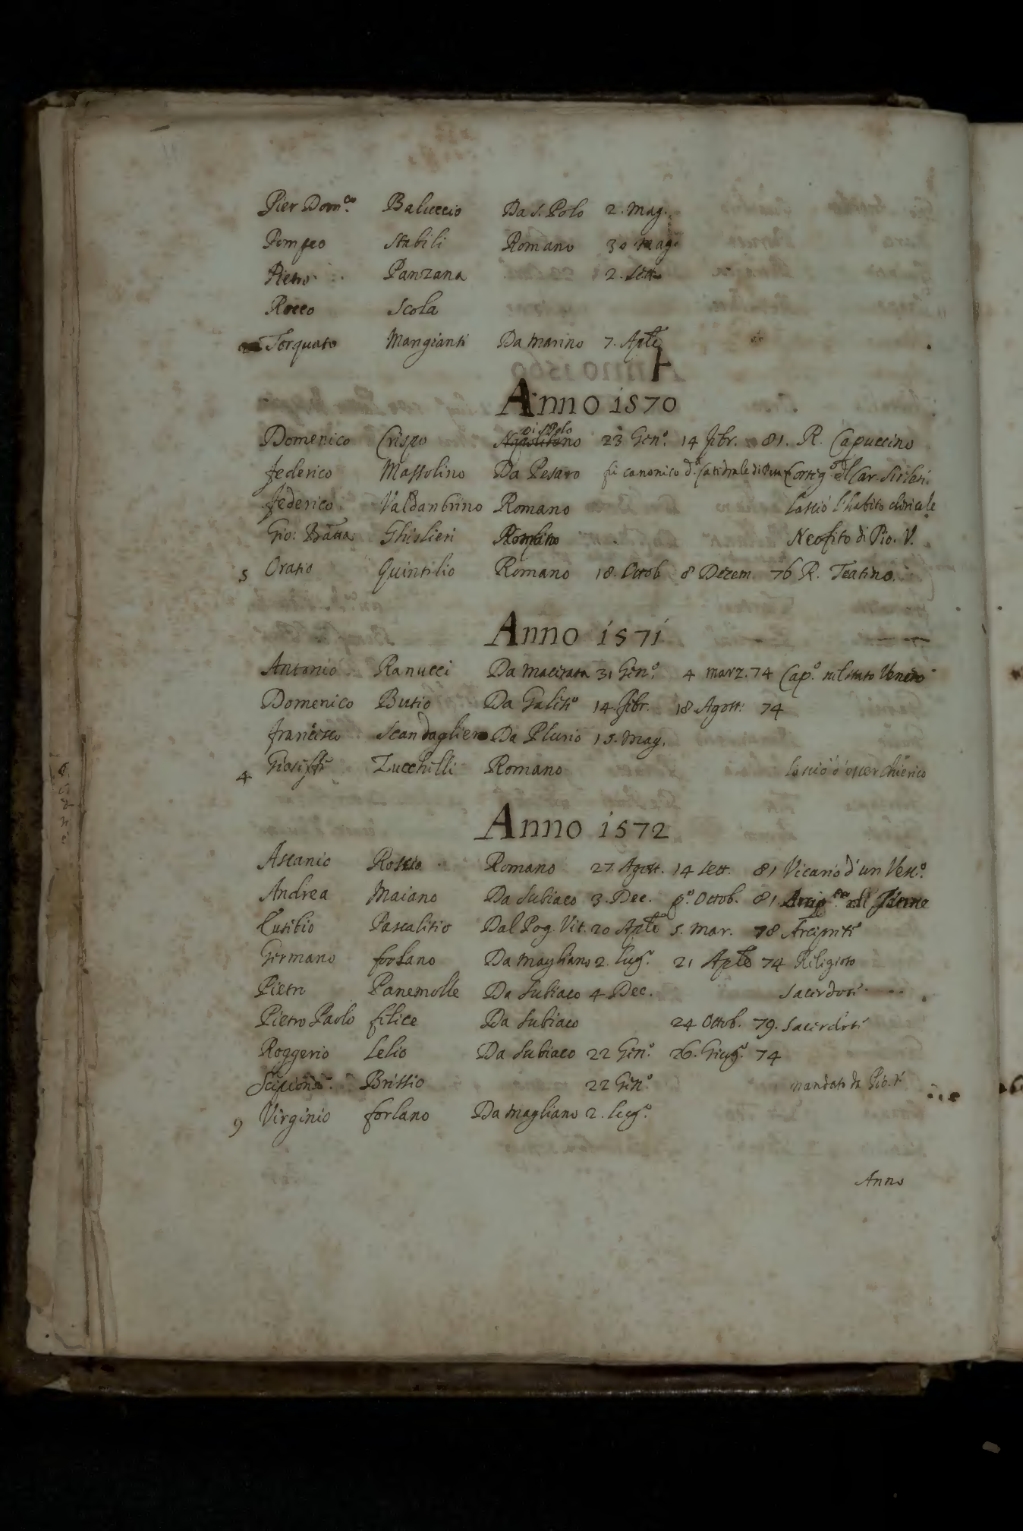 Pier Dom.co Baluccio Da S. Polo 2. Mag.
Pompeo Stabili Romano 30 Mag.
Pietro Panzana 2. Sett.
Rocco Scola
Torquato Mangianti Da Marino 7. Aple
Anno 1570
Domenico Crispo Di S. Polo 23 Gen.o 14 Febr. 81. R. Capuccino
federico Massolino Da Pesaro fu canonico d. Catedrale di Cortig.o del Car. Sirleti
federico Valdanbrino Romano Lasciò l'habito clericale
Gio: Batta Ghislieri Neofito di Pio. V.
5 Oratio Quintilio Romano 18. Ottob 8 Dezem. 76 R. Teatino
Anno 1571
Antonio Ranucci Da Macerata 31 Gen.o 4 marz. 74 Cap.o nel Stato Veneto
Domenico Butio Da Galese 14 febr. 18 Agost. 74
francesco Scandagliero Da Plurio 15. Mag.
4 Gioseffe Zucchelli Romano Lasciò d'esser chierico
Anno 1572
Ascanio Rossio Romano 27 Agost. 14 Sett. 81 Vicario d'un Vesc.o
Andrea Maiano Da Subiaco 3. Dec. p.o Ottob. 81
Eusebio Pascalitio Dal Pog. Vit. 20 Aple 5. Mar. 78 Arciprete
Germano forlano Da Magliano 2. lug.o 21 Aple 74 Religioso
Pietro Panemolle Da Subiaco 4 Dec. Sacerdote
Pietro Paolo felice Da Subiaco 24 Ottob. 79. Sacerdote
Roggerio Lelio Da Subiaco 22 Gen.o 26. Giug.o 74
Scipione Brissio 22 Gen.o mandato da Pio. V
9 Virginio forlano Da Magliano 2. lug.o
Anno